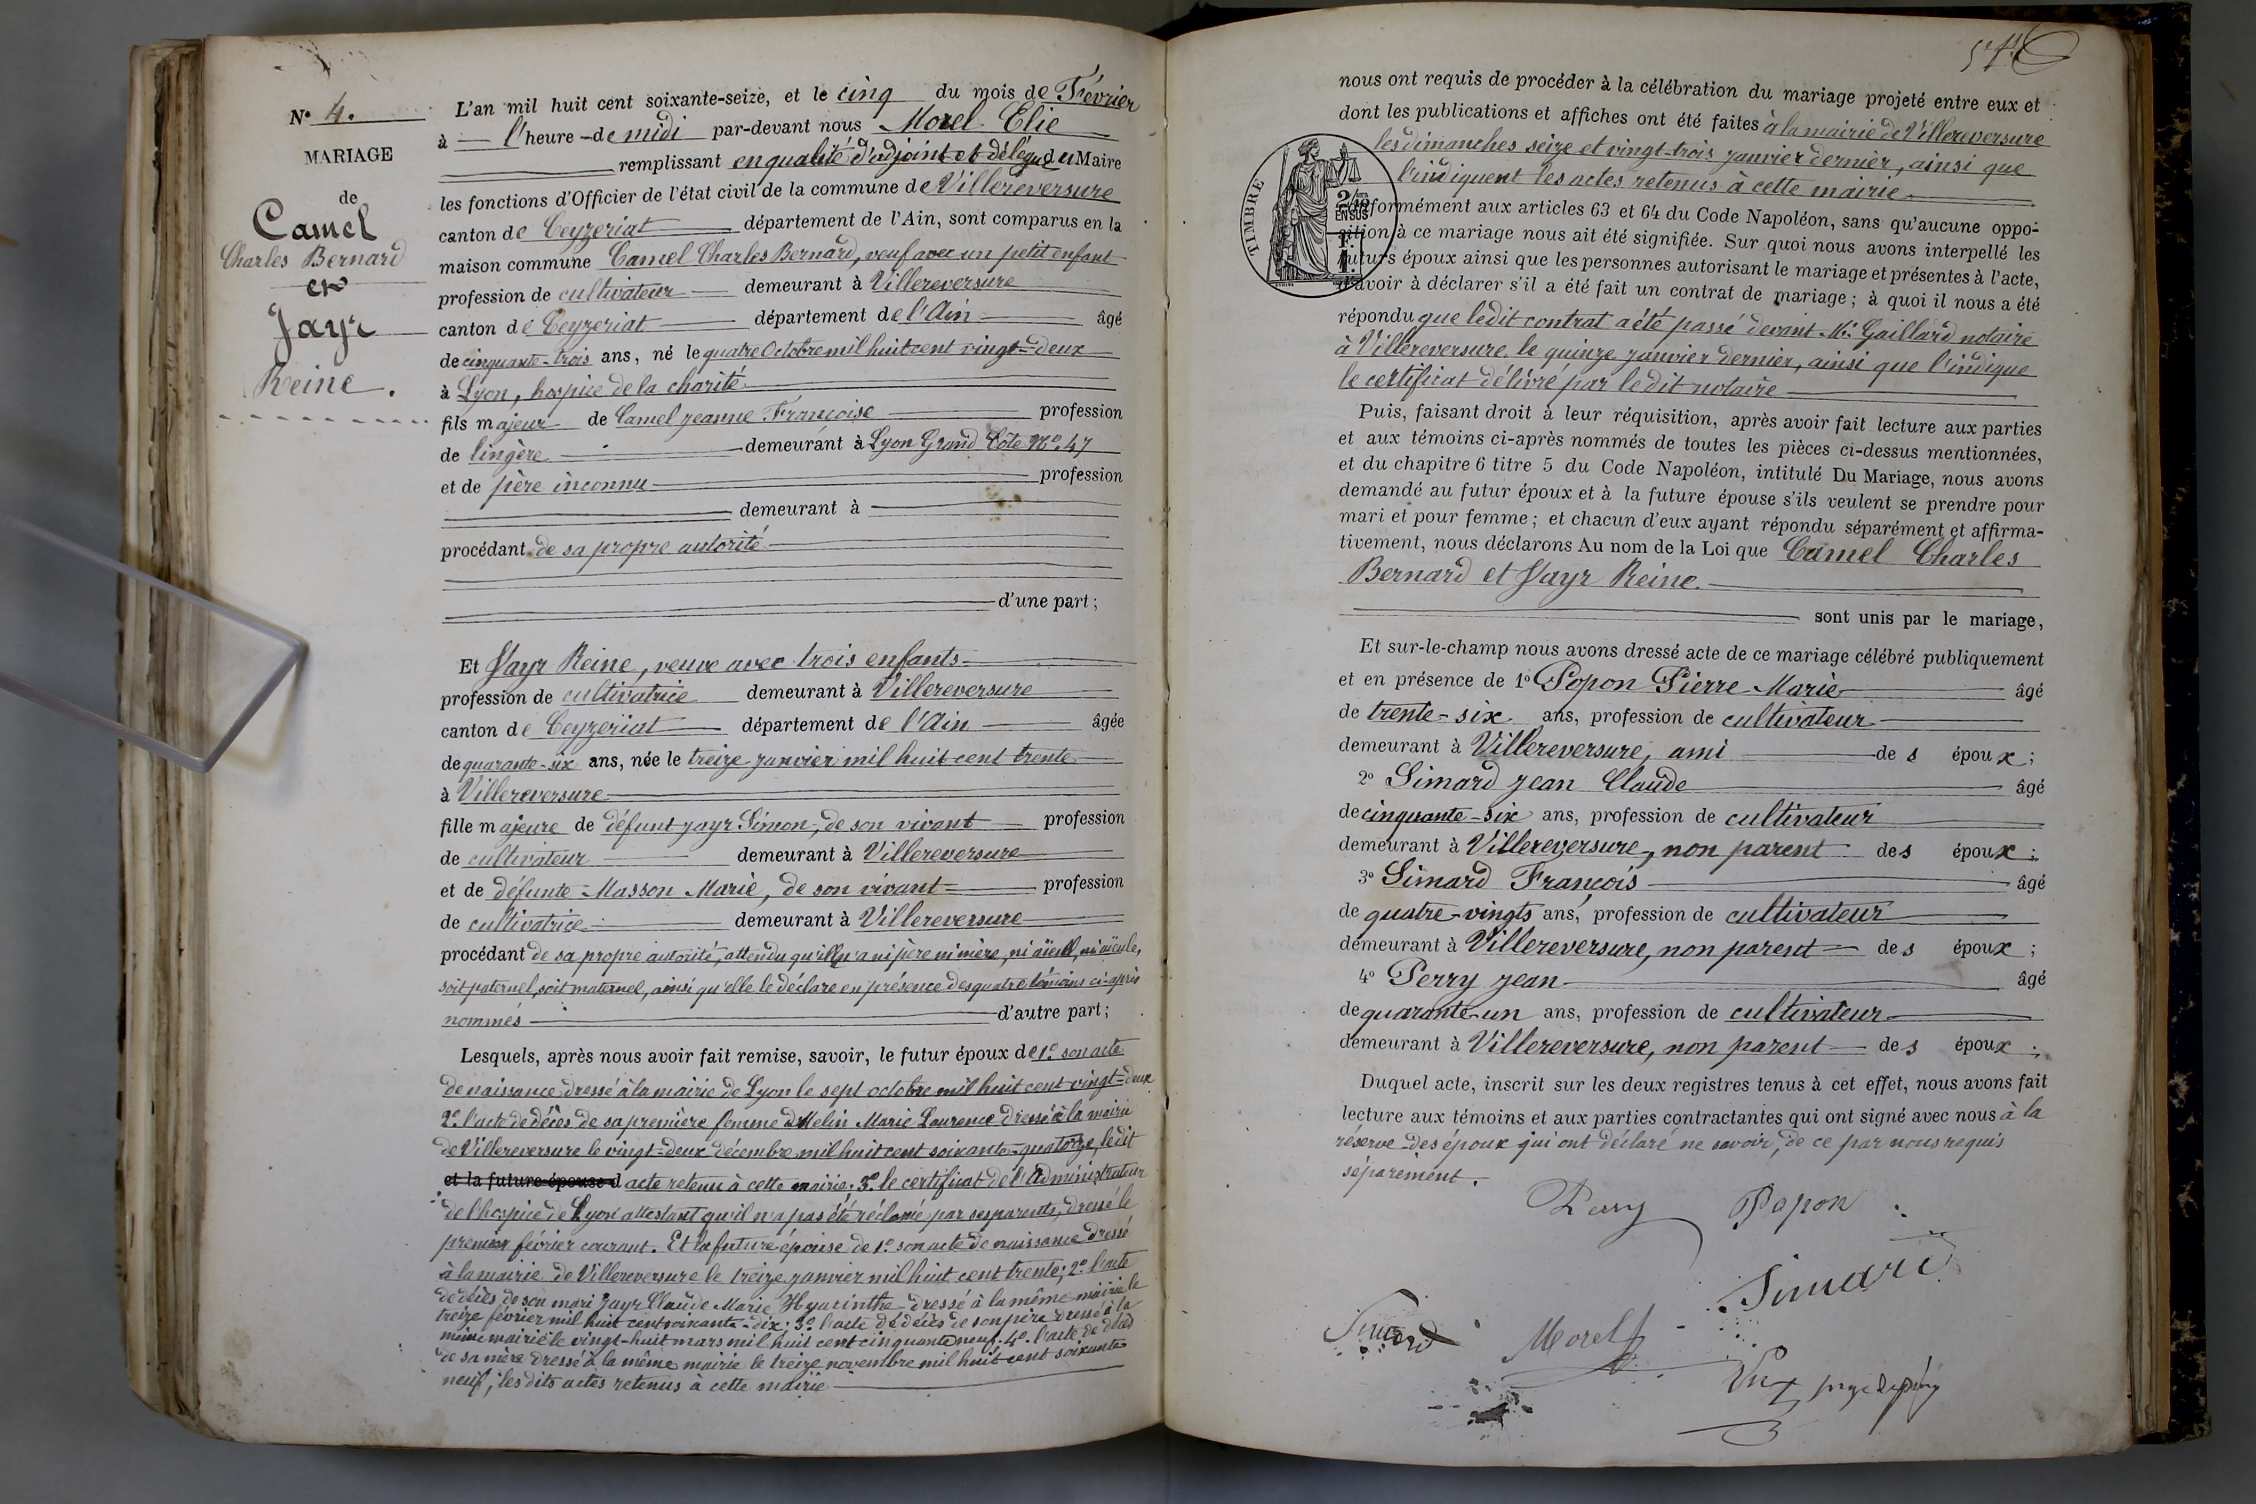 N° 4.
MARIAGE
de
Camel
Charles Bernard
et
Jayr
Reine.
L'an mil huit cent soixante-seize, et le cinq du mois de Février
à l'heure de midi par-devant nous Morel Elie
remplissant en qualité d'adjoint et délégué du Maire
les fonctions d'Officier de l'état civil de la commune de Villereversure
canton de Ceyzeriat département de l'Ain, sont comparus en la
maison commune Camel Charles Bernard, veuf avec un petit enfant
profession de cultivateur demeurant à Villereversure
canton de Ceyzeriat département de l'Ain âgé
de cinquante-trois ans, né le quatre Octobre mil huit cent vingt-deux
à Lyon, hospice de la charité
fils majeur de Camel Jeanne Françoise profession
de lingère demeurant à Lyon Grand Côte N° 47
et de père inconnu profession
demeurant à
procédant de sa propre autorité
d'une part;
Et Jayr Reine, veuve avec trois enfants
profession de cultivatrice demeurant à Villereversure
canton de Ceyzeriat département de l'Ain âgée
de quarante-six ans, née le treize janvier mil huit cent trente
à Villereversure
fille majeure de défunt Jayr Simon, de son vivant profession
de cultivateur demeurant à Villereversure
et de défunte Masson Marie, de son vivant profession
de cultivatrice demeurant à Villereversure
procédant de sa propre autorité, attendu qu'elle n'a ni père ni mère, ni aïeul, ni aïeule,
soit paternel, soit maternel, ainsi qu'elle le déclare en présence des quatre témoins ci-après
nommés d'autre part;
Lesquels, après nous avoir fait remise, savoir, le futur époux de 1° son acte
de naissance dressé à la mairie de Lyon le sept octobre mil huit cent vingt-deux
2° l'acte de décès de sa première femme Melin Marie Laurence dressé à la mairie
de Villereversure le vingt-deux décembre mil huit cent soixante-quatorze, ledit
et la future épouse d acte retenu à cette mairie. 3° le certificat de l'Administrateur
de l'hospice de Lyon attestant qu'il n'a pas été réclamé par ses parents, dressé le
premier février courant. Et la future épouse de 1° son acte de naissance dressé
à la mairie de Villereversure le treize janvier mil huit cent trente; 2° l'acte
de décès de son mari Jayr Claude Marie Hyacinthe dressé à la même mairie le
treize février mil huit cent soixante-dix; 3° l'acte de décès de son père dressé à la
même mairie le vingt-huit mars mil huit cent cinquante neuf. 4° l'acte de décès
de sa mère dressé à la même mairie le treize novembre mil huit cent soixante
neuf, les dits actes retenus à cette mairie
nous ont requis de procéder à la célébration du mariage projeté entre eux et
dont les publications et affiches ont été faites à la mairie de Villereversure
les dimanches seize et vingt-trois janvier dernier, ainsi que
l'indiquent les actes retenus à cette mairie
TIMBRE
2/10
EN SUS
1 F.
conformément aux articles 63 et 64 du Code Napoléon, sans qu'aucune oppo-
sition à ce mariage nous ait été signifiée. Sur quoi nous avons interpellé les
futurs époux ainsi que les personnes autorisant le mariage et présentes à l'acte,
d'avoir à déclarer s'il a été fait un contrat de mariage; à quoi il nous a été
répondu que ledit contrat a été passé devant Me Gaillard notaire
à Villereversure le quinze janvier dernier, ainsi que l'indique
le certificat délivré par ledit notaire
Puis, faisant droit à leur réquisition, après avoir fait lecture aux parties
et aux témoins ci-après nommés de toutes les pièces ci-dessus mentionnées,
et du chapitre 6 titre 5 du Code Napoléon, intitulé Du Mariage, nous avons
demandé au futur époux et à la future épouse s'ils veulent se prendre pour
mari et pour femme; et chacun d'eux ayant répondu séparément et affirma-
tivement, nous déclarons Au nom de la Loi que Camel Charles
Bernard et Jayr Reine
sont unis par le mariage,
Et sur-le-champ nous avons dressé acte de ce mariage célébré publiquement
et en présence de 1° Popon Pierre Marie âgé
de trente-six ans, profession de cultivateur
demeurant à Villereversure, ami des époux;
2° Simard Jean Claude âgé
de cinquante-six ans, profession de cultivateur
demeurant à Villereversure, non parent des époux;
3° Simard François âgé
de quatre-vingts ans, profession de cultivateur
demeurant à Villereversure, non parent des époux;
4° Perry Jean âgé
de quarante-un ans, profession de cultivateur
demeurant à Villereversure, non parent des époux;
Duquel acte, inscrit sur les deux registres tenus à cet effet, nous avons fait
lecture aux témoins et aux parties contractantes qui ont signé avec nous à la
réserve des époux qui ont déclaré ne savoir, de ce par nous requis
séparément.
Perry Popon
Simard
Simard Morel